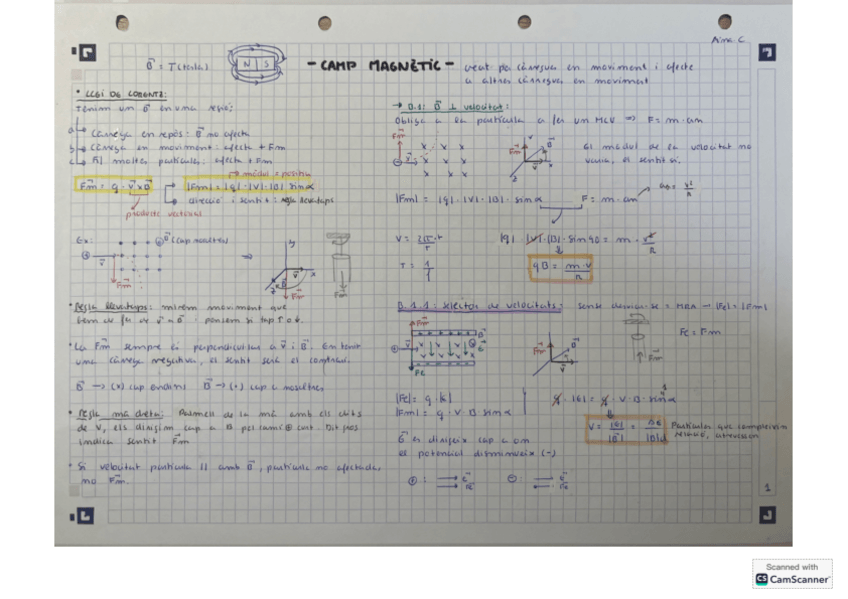 Aina C.
B⃗ = T (tesla)
N S
- CAMP MAGNÈTIC -
creat per càrregues en moviment i afecta
a altres càrregues en moviment
• LLEI DE LORENTZ:
Tenim un B⃗ en una regió:
a → Càrrega en repòs: B⃗ no afecta
b → Càrrega en moviment: afecta + Fm
c → Si moltes partícules: afecta + Fm
→ mòdul = positiu
F⃗m = q · v⃗ x B⃗
|Fm| = |q| · |v| · |B| sin α
direcció i sentit: regla llevataps
producte vectorial
Ex:
B⃗ (cap nosaltres)
F⃗m
• Regla llevataps: mirem moviment que
hem de fer de v⃗ a B⃗
• La F⃗m sempre és perpendicular a v⃗ i B⃗. En tenir
una càrrega negativa, el sentit serà el contrari.
B⃗ → (x) cap endins B⃗ → (·) cap a nosaltres
• Regla mà dreta: Palmell de la mà amb els dits
de v, els dirigim cap a B pel camí curt. Dit gros
indica sentit F⃗m
• Si velocitat partícula || amb B⃗, partícula no afectada,
no F⃗m.
→ B.1: B⃗ ⊥ velocitat:
Obliga a la partícula a fer un MCU ⇒ F = m · an
El mòdul de la velocitat no
varia, el sentit sí.
|Fm| = |q| · |v| · |B| · sin α
F = m · an
an = v²/R
v = 2π · r / T
|q| · |v| · |B| · sin 90 = m · v²/R
T = 1/f
qB = m · v / R
B.1.1: selector de velocitats: sense desviar-se = MRU → |Fe| = |Fm|
Fe = Fm
|Fe| = q · E
|Fm| = q · v · B · sin α
q · |E| = q · v · B · sin α
v = |E| / |B| = ΔV / |B|d
Partícules que compleixin
relació, travessen
E⃗ es dirigeix cap a on
el potencial disminueix (-)
⊕: E⃗ F⃗e
⊖: E⃗ F⃗e
1
Scanned with
CS CamScanner